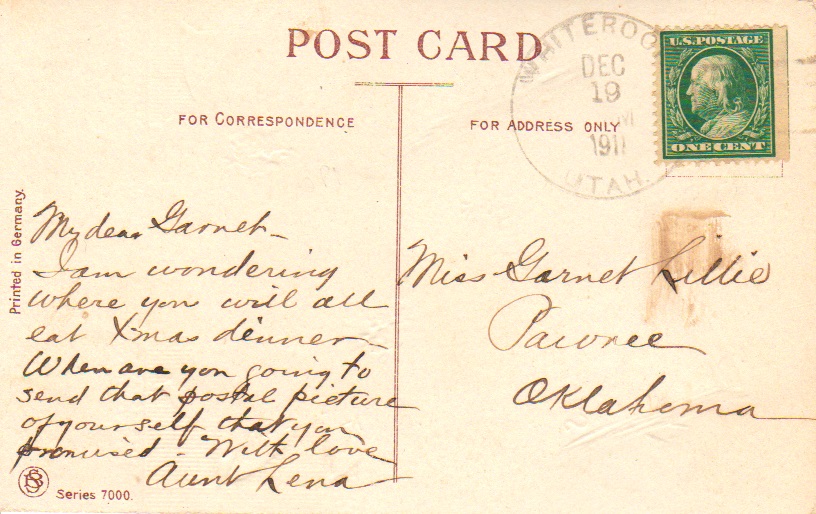 POST CARD
FOR CORRESPONDENCE
FOR ADDRESS ONLY
WHITEROC
DEC
19
M
1911
UTAH.
U.S. POSTAGE
ONE CENT
Printed in Germany.
My dear Garnet -
I am wondering
where you will all
eat Xmas dinner -
When are you going to
send that postal picture
of yourself that you
promised - With love
Aunt Lena
Miss Garnet Lillie
Pawnee
Oklahoma
Series 7000.